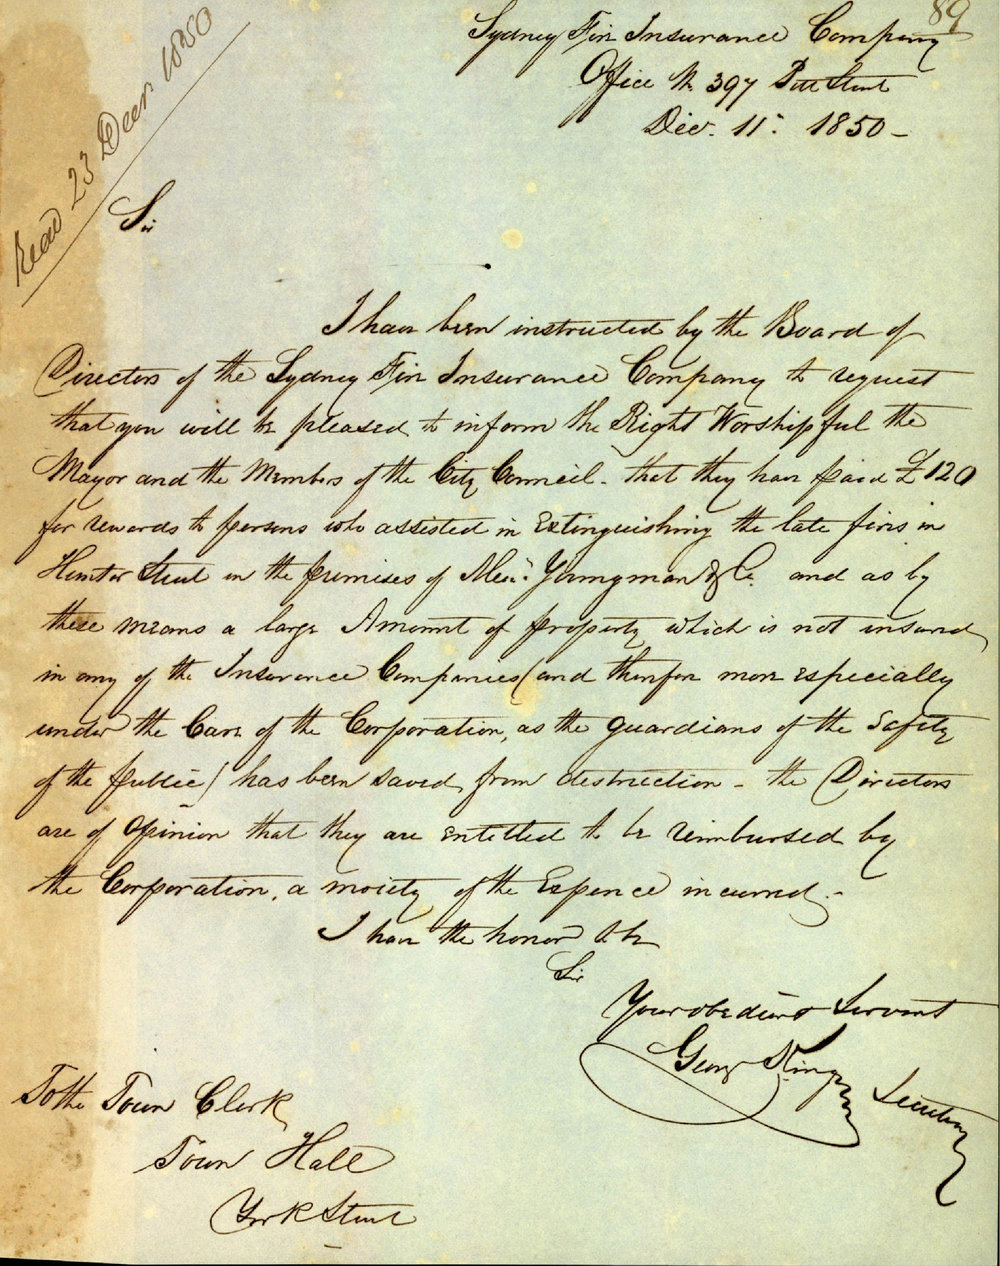 89
Sydney Fire Insurance Company
Office No 397 Pitt Street
Decr. 11th. 1850 –
Read 23 Decr 1850
Sir
I have been instructed by the Board of
Directors of the Sydney Fire Insurance Company to request
that you will be pleased to inform the Right Worshipful the
Mayor and the Members of the City Council – that they have paid £120
for rewards to persons who assisted in Extinguishing the late fires in
Hunter Street on the premises of Messrs. Youngman & Co. and as by
these means a large Amount of property which is not insured
in any of the Insurance Companies (and therefore more especially
under the Care of the Corporation, as the guardians of the Safety
of the public) has been saved from destruction – the Directors
are of Opinion that they are entitled to be reimbursed by
the Corporation, a moiety of the Expence incurred. –
I have the honor to be
Sir
Your obedient Servant
George King
Secretary
To the Town Clerk
Town Hall
York Street